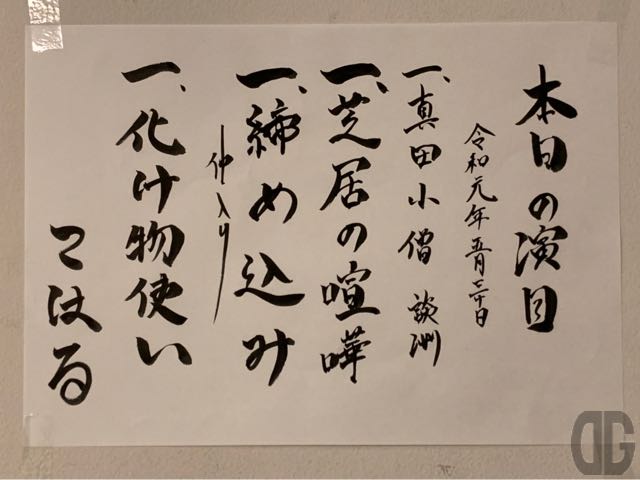 本日の演目
令和元年五月三十日
一、真田小僧 談洲
一、芝居の喧嘩
一、締め込み
仲入り
一、化け物使い
こはる
DG